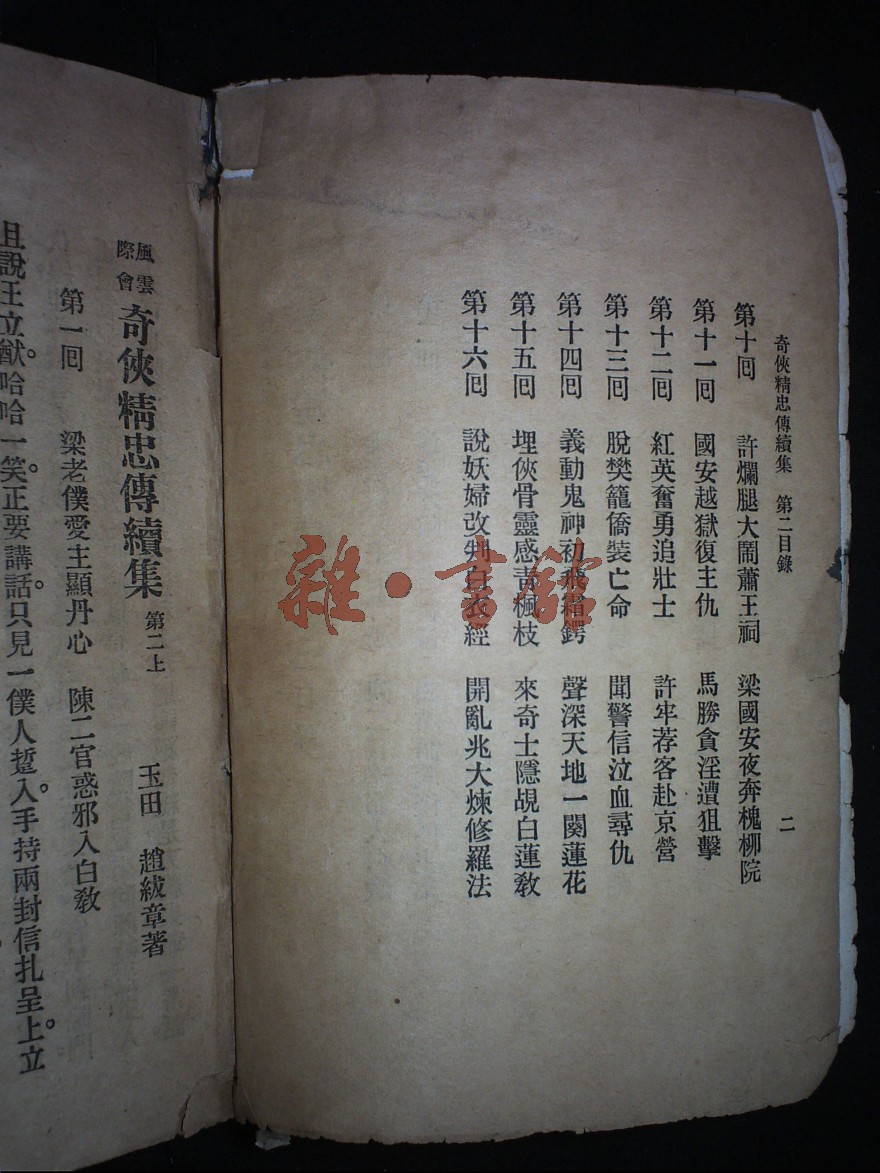 奇俠精忠傳續集 第二目錄 二
第十回 許爛腿大鬧蕭王祠 梁國安夜奔槐柳院
第十一回 國安越獄復主仇 馬勝貪淫遭狙擊
第十二回 紅英奮勇追壯士 許牢荐客赴京營
第十三回 脫樊籠僑裝亡命 聞警信泣血尋仇
第十四回 義動鬼神初飛霜鍔 聲深天地一闋蓮花
第十五回 埋俠骨靈感青楓枝 來奇士隱覘白蓮教
第十六回 說妖婦改判白衣經 開亂兆大煉修羅法
雜·書館
風雲際會 奇俠精忠傳續集 第二上
玉田 趙紱章著
第一回 梁老僕愛主顯丹心 陳二官惑邪入白教
且說王立猷。哈哈一笑。正要講話。只見一僕人踅入。手持兩封信扎呈上。立